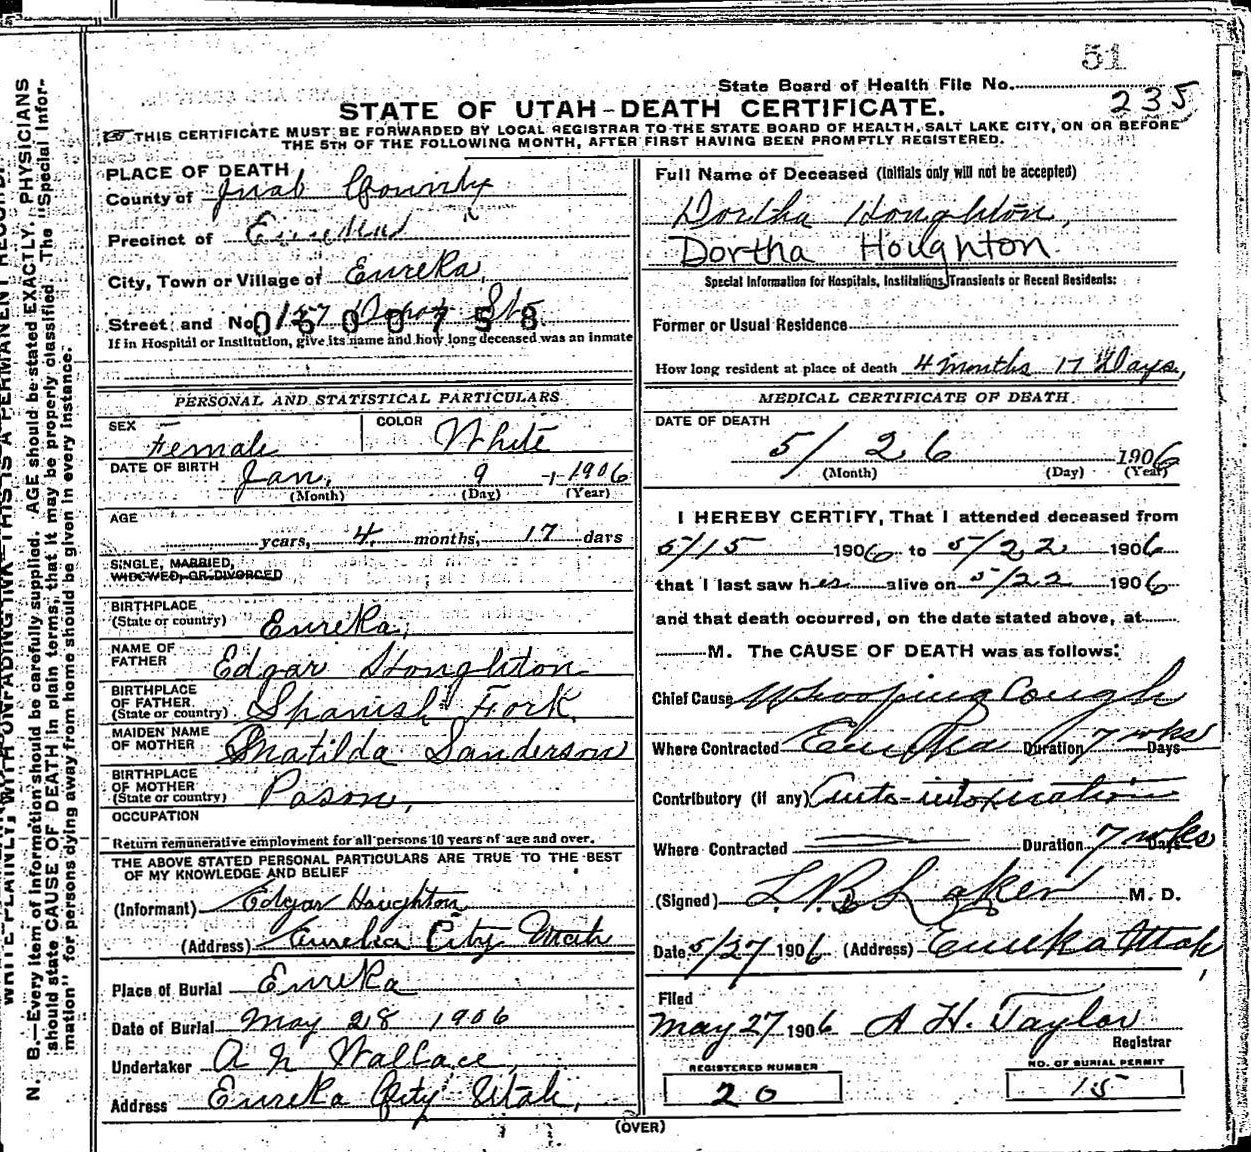 51
State Board of Health File No.
235
STATE OF UTAH-DEATH CERTIFICATE.
THIS CERTIFICATE MUST BE FORWARDED BY LOCAL REGISTRAR TO THE STATE BOARD OF HEALTH, SALT LAKE CITY, ON OR BEFORE
THE 5TH OF THE FOLLOWING MONTH, AFTER FIRST HAVING BEEN PROMPTLY REGISTERED.
PLACE OF DEATH
County of Juab County
Precinct of
City, Town or Village of Eureka,
Street and No. 127 Depot St.
0600758
If in Hospital or Institution, give its name and how long deceased was an inmate
PERSONAL AND STATISTICAL PARTICULARS
SEX Female COLOR White
DATE OF BIRTH Jan. 9 1906
(Month) (Day) (Year)
AGE
years, 4 months, 17 days
SINGLE, MARRIED,
WIDOWED, OR DIVORCED
BIRTHPLACE
(State or country) Eureka,
NAME OF
FATHER Edgar Houghton
BIRTHPLACE
OF FATHER
(State or country) Spanish Fork
MAIDEN NAME
OF MOTHER Matilda Sanderson
BIRTHPLACE
OF MOTHER
(State or country) Pason,
OCCUPATION
Return remunerative employment for all persons 10 years of age and over.
THE ABOVE STATED PERSONAL PARTICULARS ARE TRUE TO THE BEST
OF MY KNOWLEDGE AND BELIEF
(Informant) Edgar Houghton
(Address) Eureka City Utah
Place of Burial Eureka
Date of Burial May 28 1906
Undertaker A N Wallace
Address Eureka City Utah,
Full Name of Deceased (Initials only will not be accepted)
Dortha Houghton,
Dortha Houghton
Special Information for Hospitals, Institutions, Transients or Recent Residents:
Former or Usual Residence
How long resident at place of death 4 months 17 Days,
MEDICAL CERTIFICATE OF DEATH
DATE OF DEATH
5/ 26 1906
(Month) (Day) (Year)
I HEREBY CERTIFY, That I attended deceased from
5/15 1906 to 5/22 1906
that I last saw her alive on 5/22 1906
and that death occurred, on the date stated above, at
M. The CAUSE OF DEATH was as follows:
Chief Cause Whooping Cough
Where Contracted Eureka Duration 7 wks Days
Contributory (if any) Auto-intoxication
Where Contracted Duration 7 wks Days
(Signed) M. D.
Date 5/27 1906 (Address) Eureka Utah,
Filed
May 27 1906 A H. Taylor
Registrar
REGISTERED NUMBER
20
NO. OF BURIAL PERMIT
15
(OVER)
N. B.—Every item of information should be carefully supplied. AGE should be stated EXACTLY. PHYSICIANS
should state CAUSE OF DEATH in plain terms, that it may be properly classified. The "Special Infor-
mation" for persons dying away from home should be given in every instance.